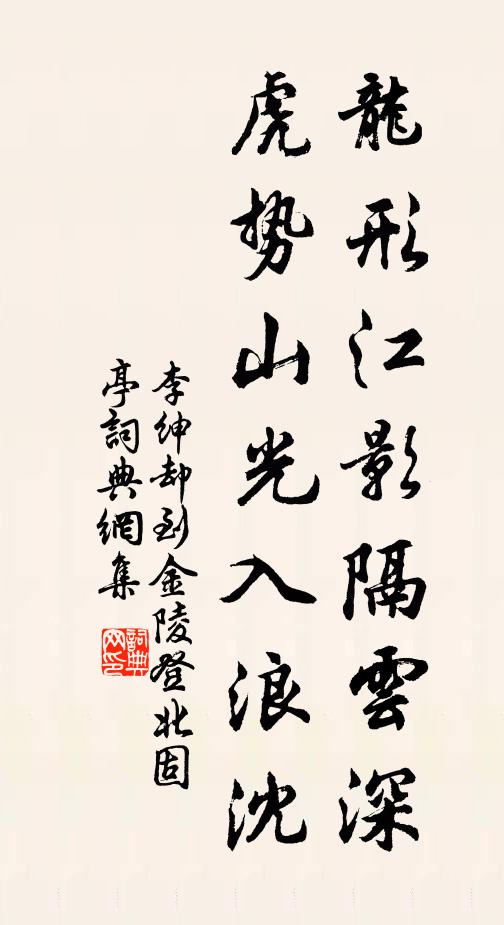 龍形江影隔雲深
虎勢山光入浪沈
李紳却到金陵登北固
亭詞典網集
詞典網印